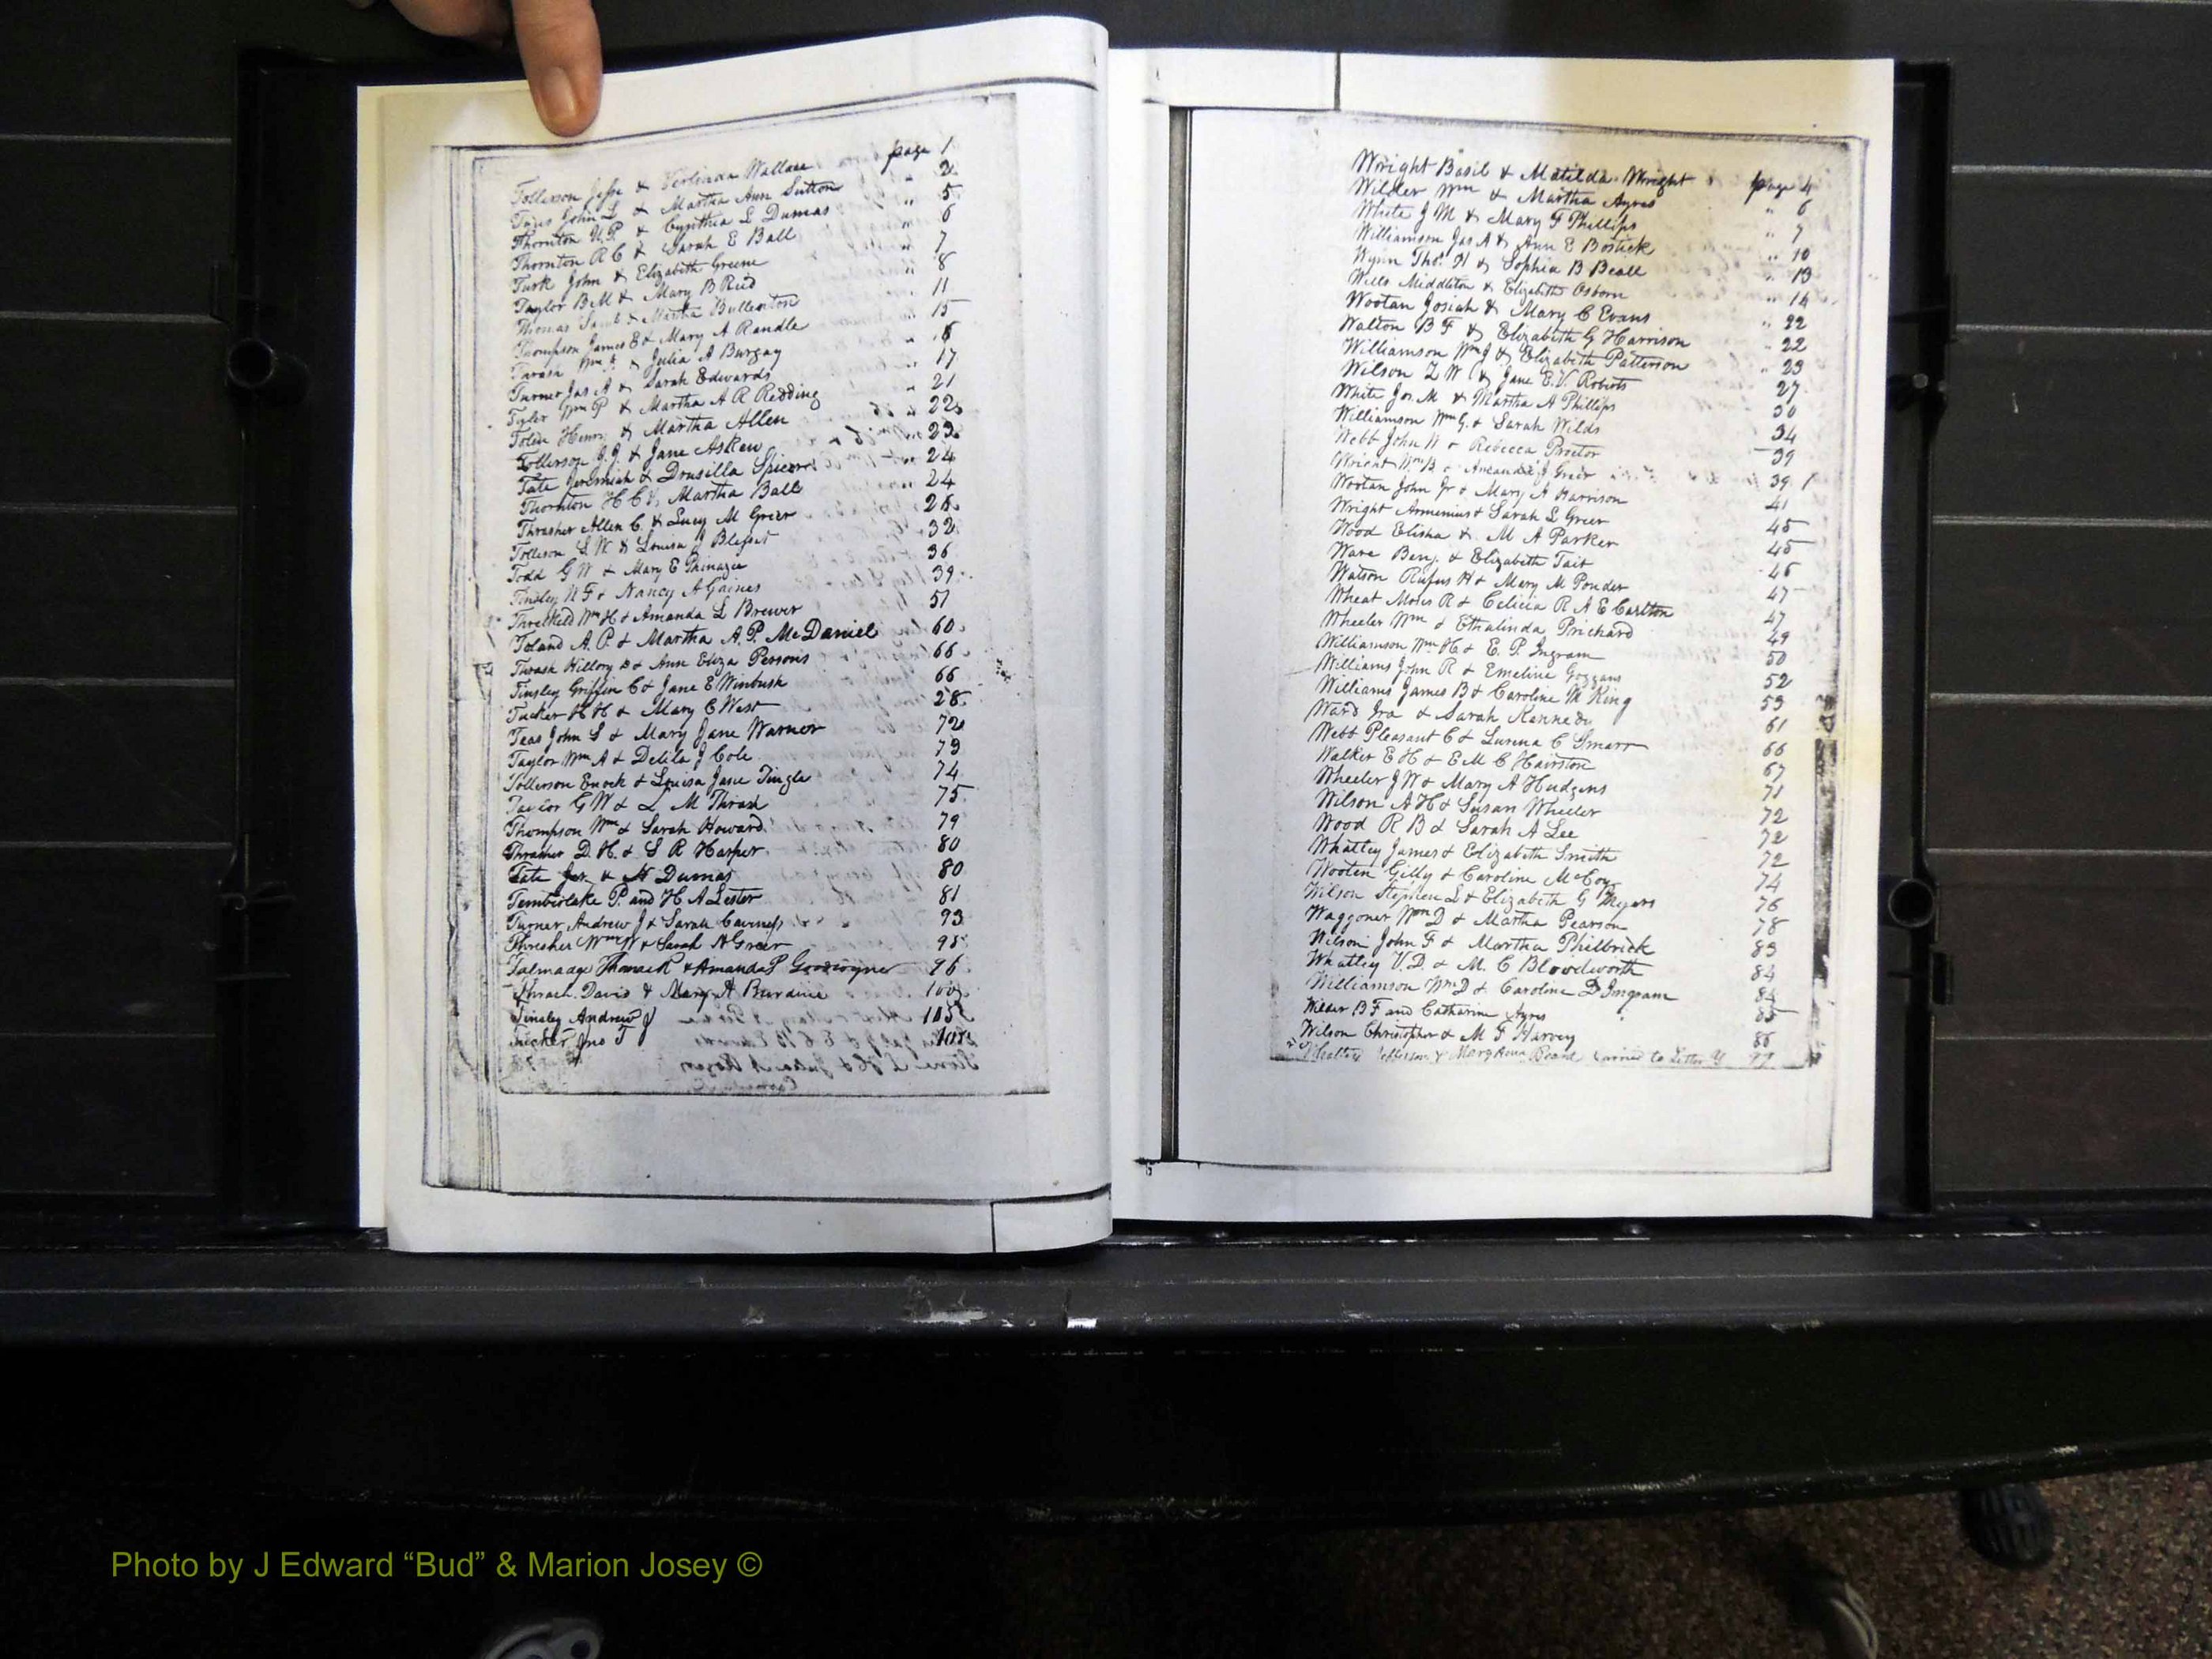 Tollerson Jesse & Verlinda Wallace page 1
John L & Martha Ann Sutton " 2
Thornton U. P. & Cynthia L Dumas " 5
Thornton R C & Sarah E Ball " 6
Turk John & Elizabeth Greene " 7
Taylor B M & Mary B Reid " 8
Thomas & Martha Bullenton " 11
Thompson James E & Mary A Randle " 15
Thrash Wm & Julia A Burgay " 16
Turner Jas A & Sarah Edwards " 17
Tyler Wm P & Martha A R Redding " 21
Henry & Martha Allen " 22
Tollerson J. J. & Jane Askew " 23
Tate Jeremiah & Drusilla Spicer " 24
Thornton H C & Martha Ball 24
Thrasher Allen C. & Lucy M Grier 26
Tollison L W & Louisa J Blessit 32
Todd G W & Mary E Phinazee 36
Tinsley N F & Nancy A Gaines 39
Threlkeld Wm H & Amanda L Brewer 51
Toland A. P. & Martha A. P. McDaniel 60
Thrash Hillory D & Ann Eliza Persons 66
Tinsley Griffin C & Jane E Winbush 66
Tucker H H & Mary C West 28
Teas John S & Mary Jane Warner 72
Taylor Wm A & Delila J Cole 73
Tollerson Enoch & Louisa Jane Tingle 74
Taylor G W & L M Thrash 75
Thompson Wm & Sarah Howard 79
Thrasher D. H. & S R Harper 80
Tate Jer. & N Dumas 80
Temberlake P. and H A Lester 81
Turner Andrew J & Sarah Caviness 93
Thresher Wm W & Sarah N Greer 95
Talmadge Thomas R & Amanda P 96
Thrash David & Mary A Burdine 100
Tinsley Andrew J 105
Tucker Jno T
Wright Basil & Matilda Wright page 4
Wilder Wm & Martha Ayres " 6
White J M & Mary F Phillips " 7
Williamson Jas A & Ann E Bostick " 10
Wynn Thos H & Sophia B Beall " 13
Wills Middleton & Elizabeth Osborn " 14
Wootan Josiah & Mary C Evans " 22
Walton B F & Elizabeth G Harrison " 22
Williamson Wm J & Elizabeth Patterson " 23
Wilson L W & Jane E. V. Roberts 27
White Jos. M & Martha A Phillips 30
Williamson Wm G. & Sarah Wilds 34
Webb John W & Rebecca Proctor 39
Wright Wm B & Amanda J Greer 39
Wootan John Jr & Mary A Harrison 41
Wright Armenius & Sarah L Greer 45
Wood Elisha & M A Parker 45
Ware Benj. & Elizabeth Tait 46
Watson Rufus H & Mary M Ponder 47
Wheat Moses R & Celicia R A E Carlton 47
Wheeler Wm & Ethalinda Prichard 49
Williamson Wm H & E. P. Ingram 50
Williams John R & Emeline Goggans 52
Williams James B & Caroline M King 53
Ward Ira & Sarah Kennedy 61
Webb Pleasant C & Lurena C Smarr 66
Walker E H & E M C Hairston 67
Wheeler J W & Mary A Hudgens 71
Wilson A H & Susan Wheeler 72
Wood R B & Sarah A Lee 72
Whatley James & Elizabeth Smith 72
Wooten Gilly & Caroline McCoy 74
Wilson Stephen L & Elizabeth G Myers 76
Waggoner Wm D & Martha Pearson 78
Wilson John F & Martha Philbrick 83
Whatley V. D. & M. C Bloodworth 84
Williamson Wm D & Caroline D Ingram 84
Wilder B F and Catharine Ayres 85
Wilson Christopher & M F Harvey 86
Whatley Jefferson & Mary Ann Beard carried to Letter Y 97
Photo by J Edward “Bud” & Marion Josey ©